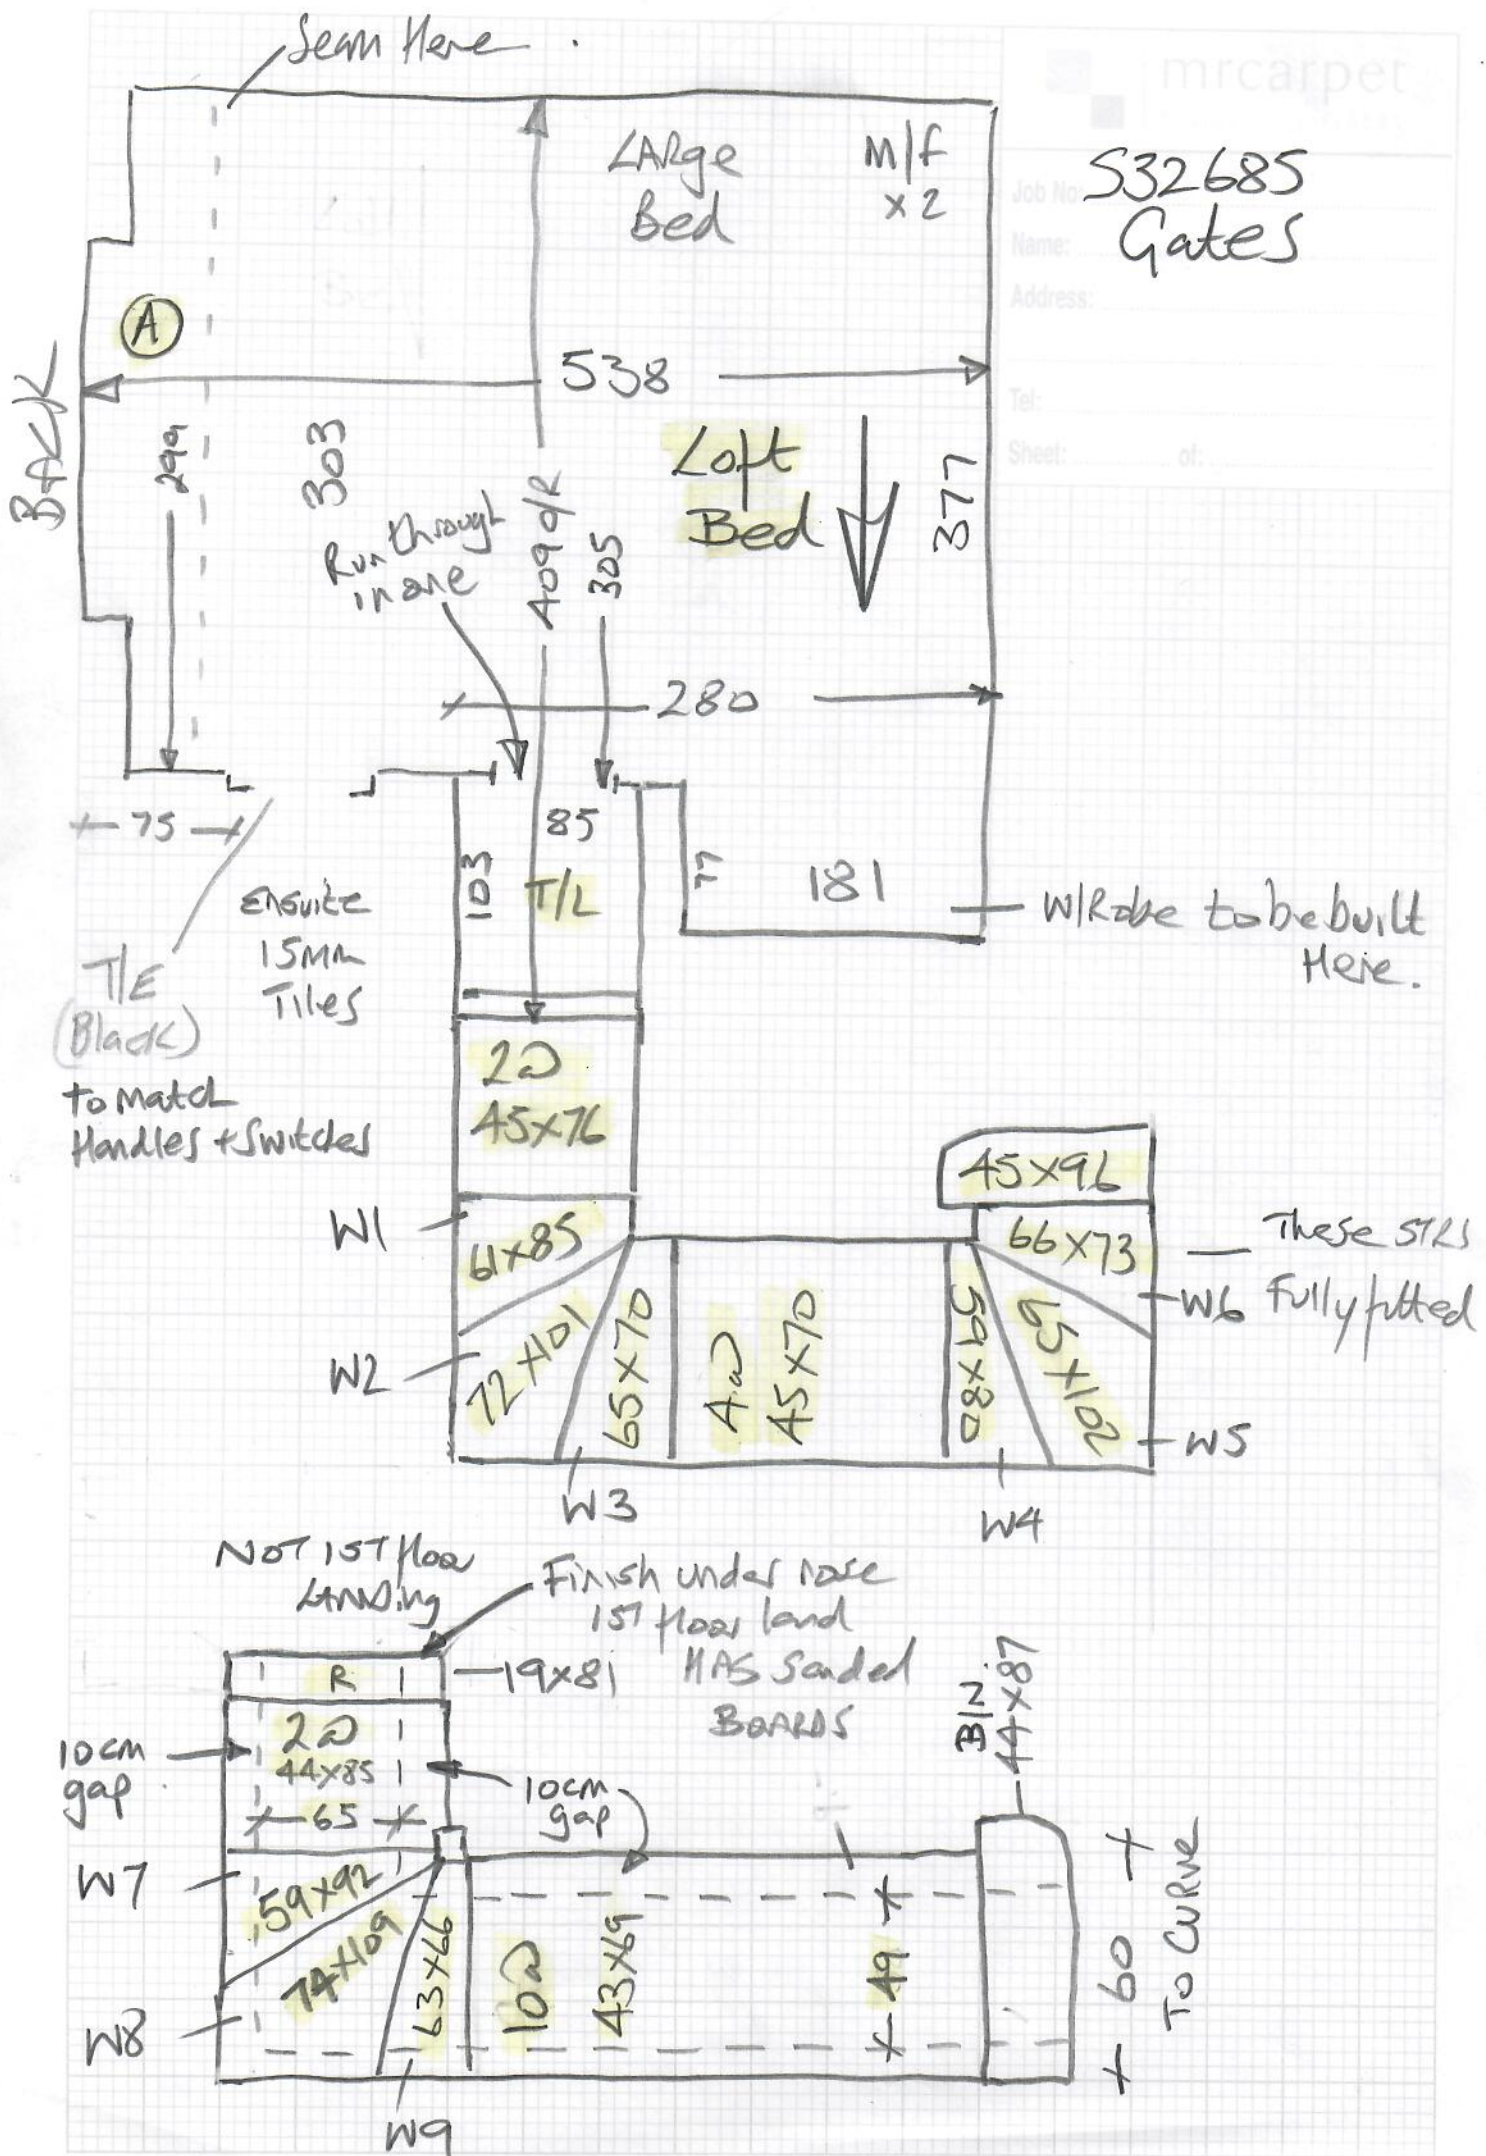 Seam Here
mrcarpet
LARge
Bed
M/f
x 2
Job No:
S32685
Name:
Gates
Address:
Tel:
Sheet: of:
A
BACK
538
299
303
Run through
in one
409 O/R
305
Loft
Bed
377
280
75
85
103
T/L
77
181
W/Robe to be built
Here.
Ensuite
15mm
Tiles
T/E
(Black)
to match
Handles + Switches
2@
45x76
45x96
W1
61x85
66x73
These STRS
Fully fitted
W6
W2
72x101
65x70
4@
45x70
59x80
65x102
W5
W3
W4
NOT 1ST floor
LANDing
Finish under nose
1ST floor land
HAS Sanded
BOARDS
R
19x81
10cm
gap
2@
44x85
65
10cm
gap
44x87
W7
59x92
74x109
63x66
10@
43x69
49
60
TO CURVE
W8
W9